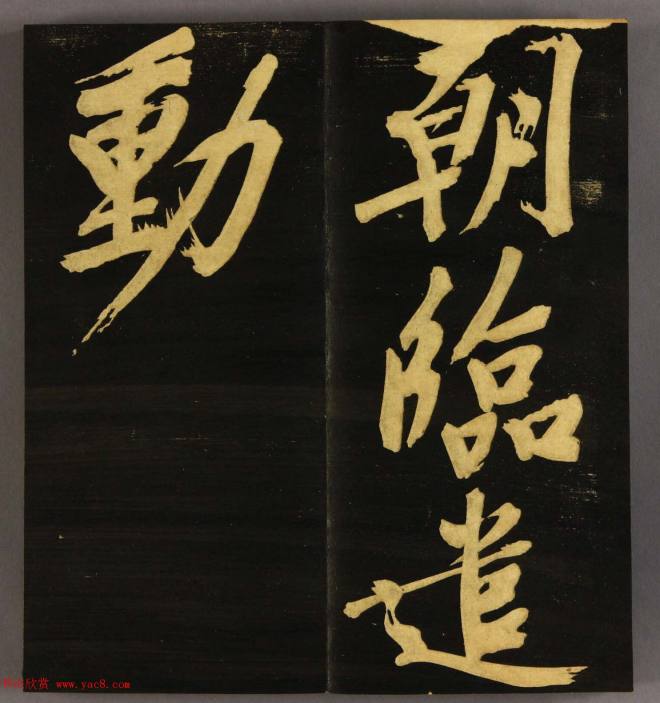 朝臨遣
動
書法欣赏 www.yac8.com